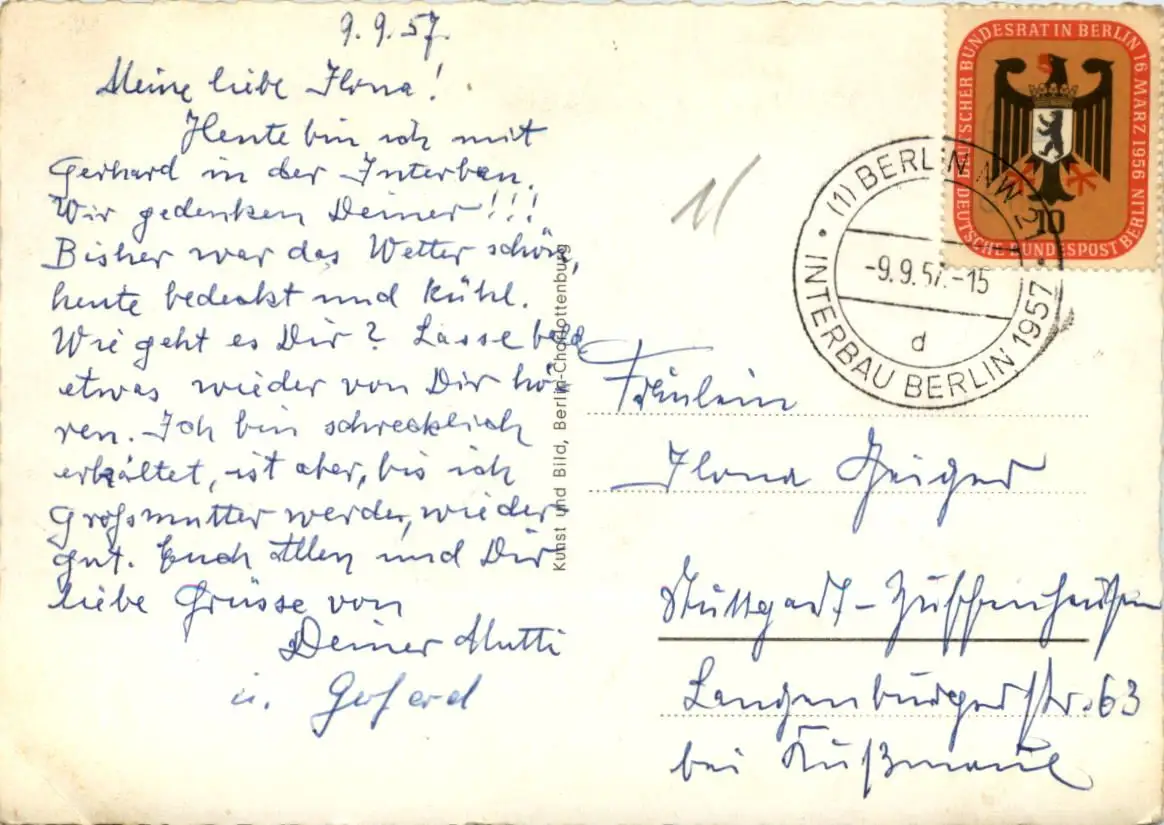 9.9.57.
Meine liebe Ilona!
Heute bin ich mit
Gerhard in der Interbau.
Wir gedenken Deiner!!!
Bisher war das Wetter schön,
heute bedeckt und kühl.
Wie geht es Dir? Lasse bald
etwas wieder von Dir hö
ren. Ich bin schrecklich
erkältet, ist aber, bis ich
Grossmutter werde, wieder
gut. Euch Allen und Dir
liebe Grüsse von
Deiner Mutti
u. Gerhard
11
Kunst und Bild, Berlin-Charlottenburg
DEUTSCHER BUNDESRAT IN BERLIN 16 MÄRZ 1956
DEUTSCHE BUNDESPOST BERLIN
10
(1) BERLIN NW
-9.9.57.-15
d
INTERBAU BERLIN 1957
Fräulein
Ilona Geiger
Stuttgart-Zuffenhausen
Langenburgerstr. 63
bei Kußmaul